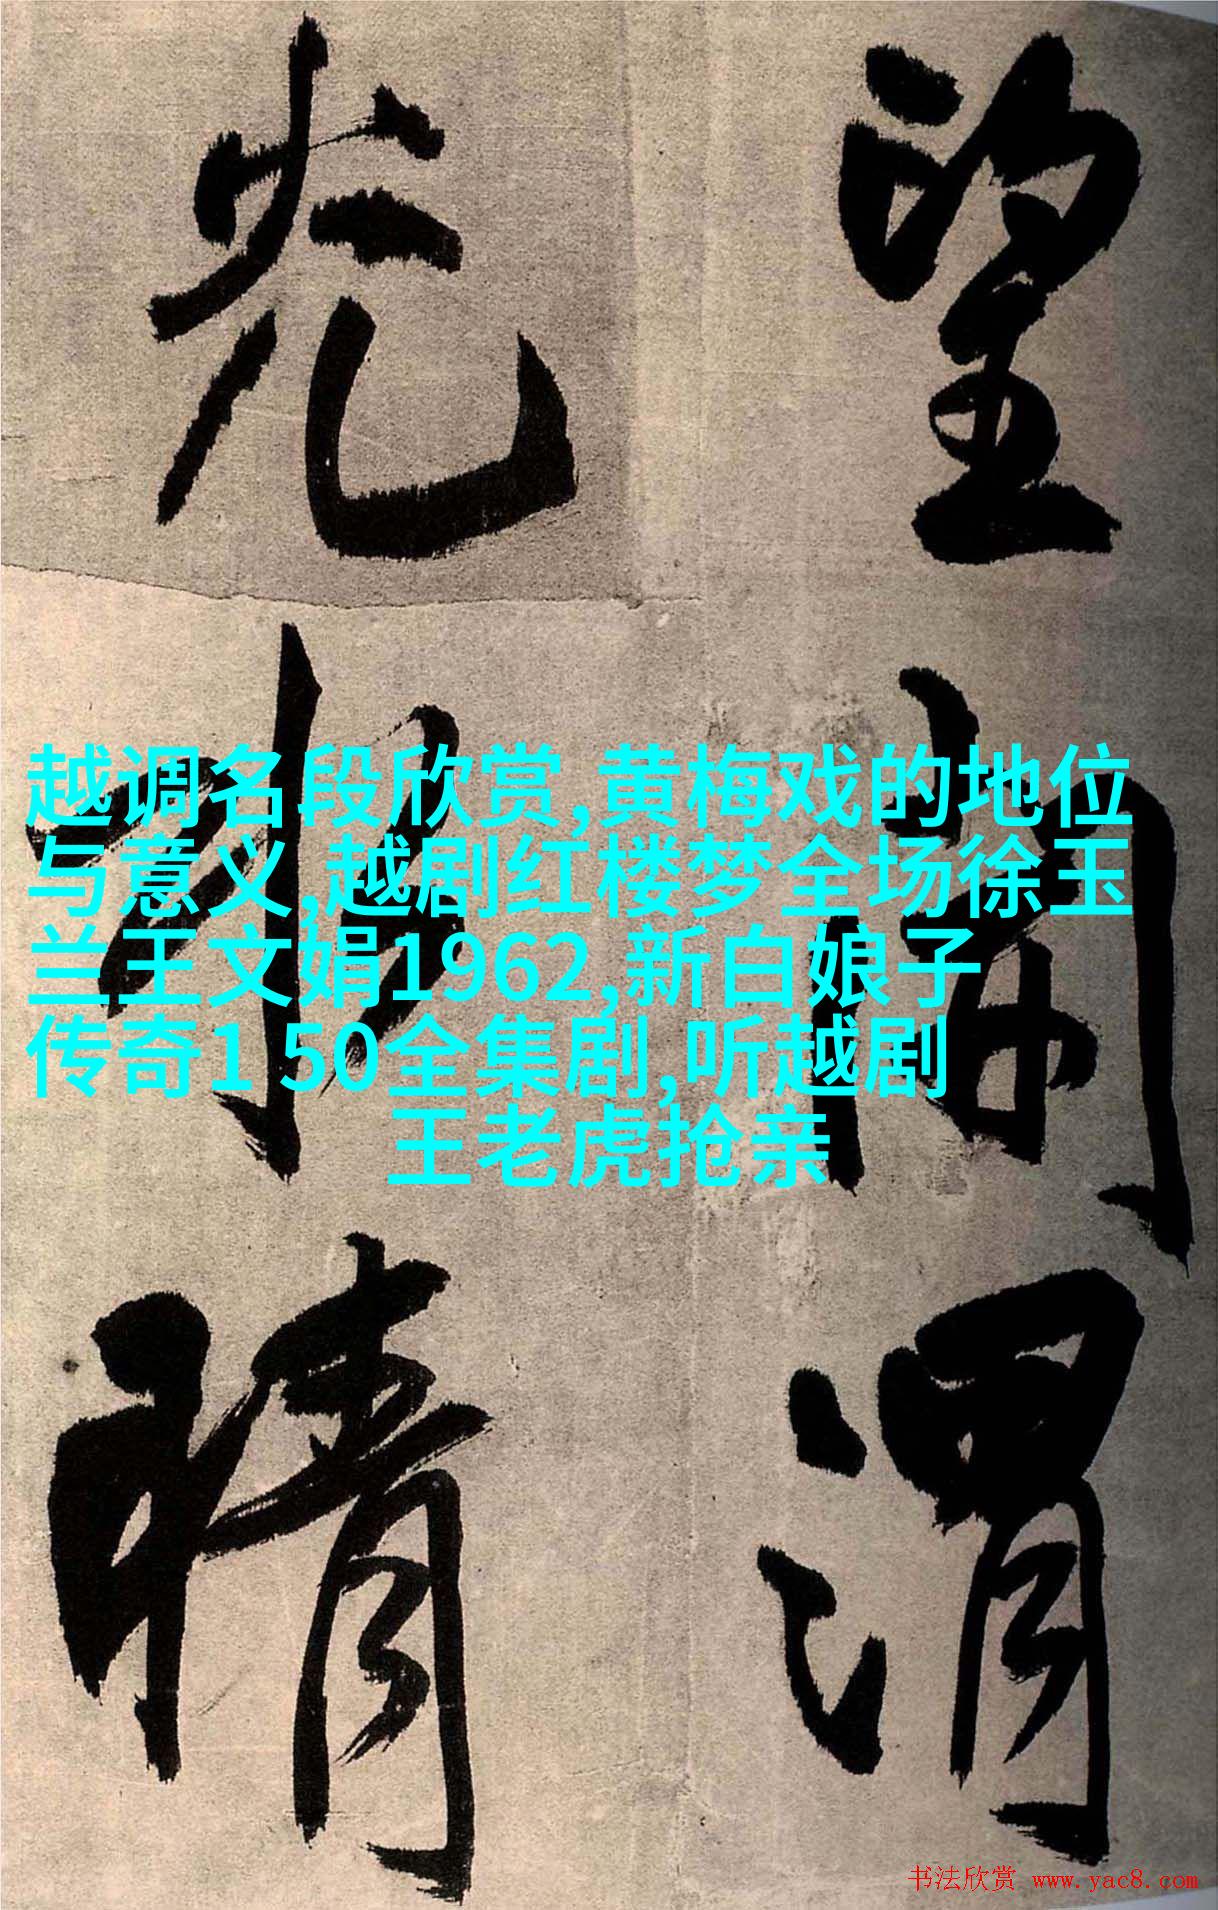 望
渭
光
晴
越调名段欣赏,黄梅戏的地位
与意义,越剧红楼梦全场徐玉
兰王文娟1962,新白娘子
传奇1 50全集剧,听越剧
王老虎抢亲
书法欣赏 www.yac8.com